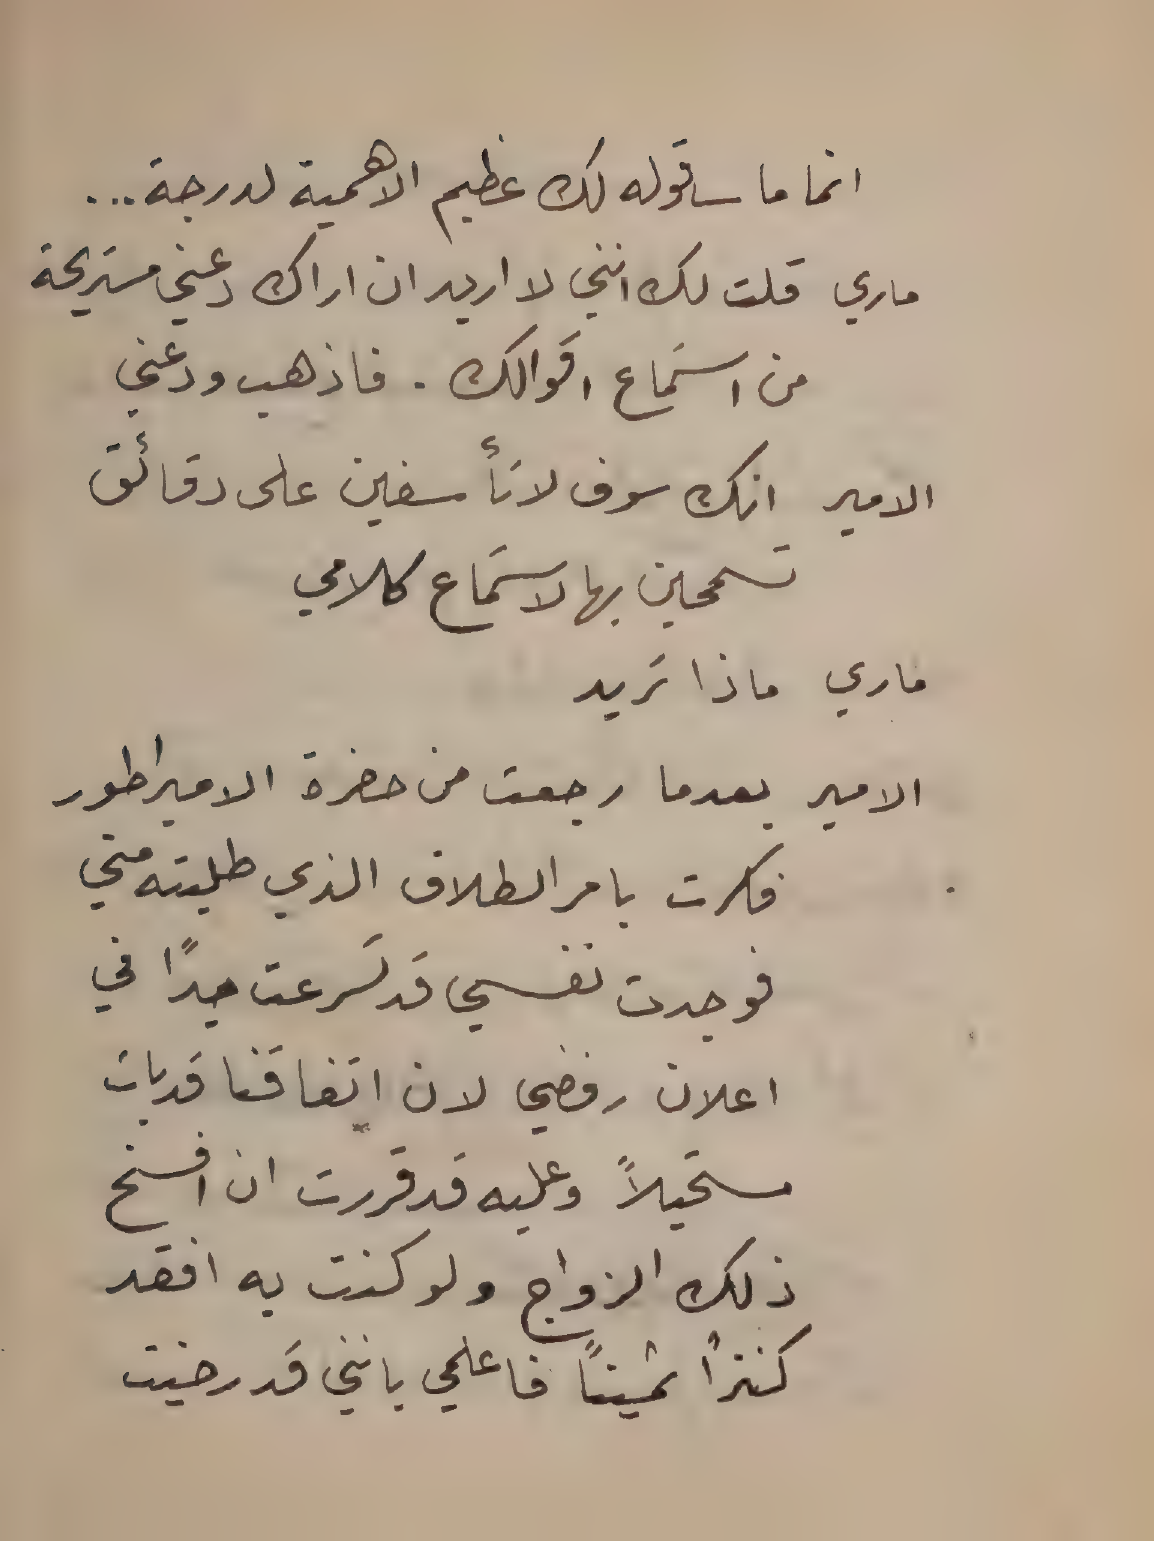 انما ما ساقوله لك عظيم الاهمية لدرجة...
ماري قلت لك انني لا اريد ان اراك دعني مستريحة
من استماع اقوالك . فاذهب ودعني
الامير انك سوف لا تأسفين على دقائق
تسمحين بها لاستماع كلامي
ماري ماذا تريد
الامير بعدما رجعت من حضرة الامبراطور
فكرت بامر الطلاق الذي طلبته مني
فوجدت نفسي قد تسرعت جدًا في
اعلان رفضي لان اتفاقنا قد بات
مستحيلاً وعليه قد قررت ان افسخ
ذلك الزواج ولو كنت به افقد
كنزاً ثميناً فاعلمي بانني قد رضيت